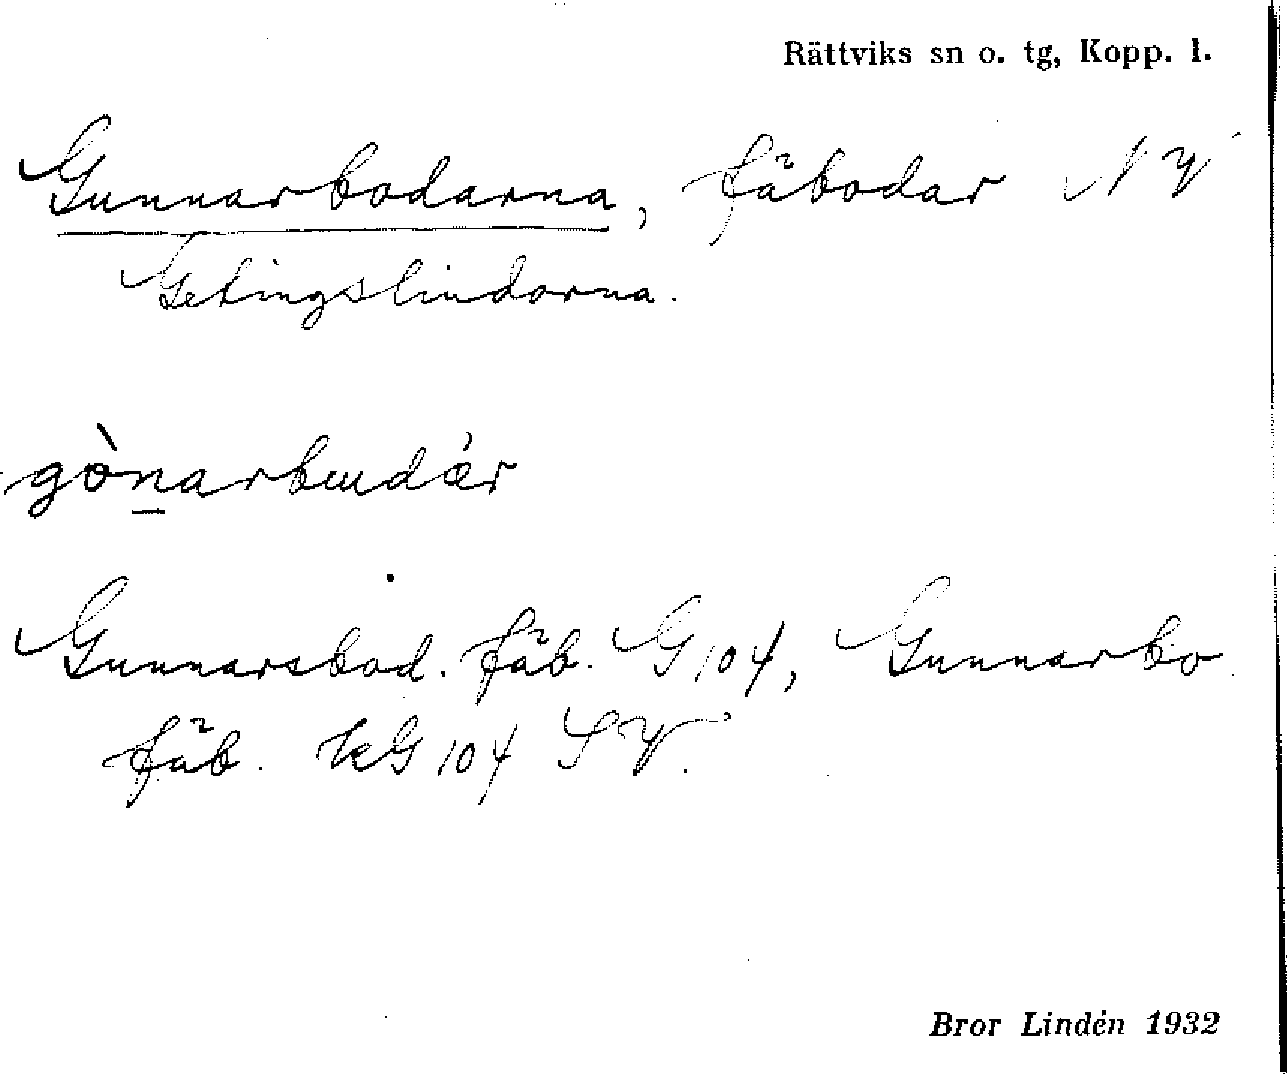 Rättviks sn o. tg, Kopp. l.
Gunnarbodarna, fäbodar NV
Getingslindorna.
gònarbɯdær
Gunnarsbod. fäb. G 104, Gunnarbo
fäb. KG 104 SV.
Bror Lindén 1932